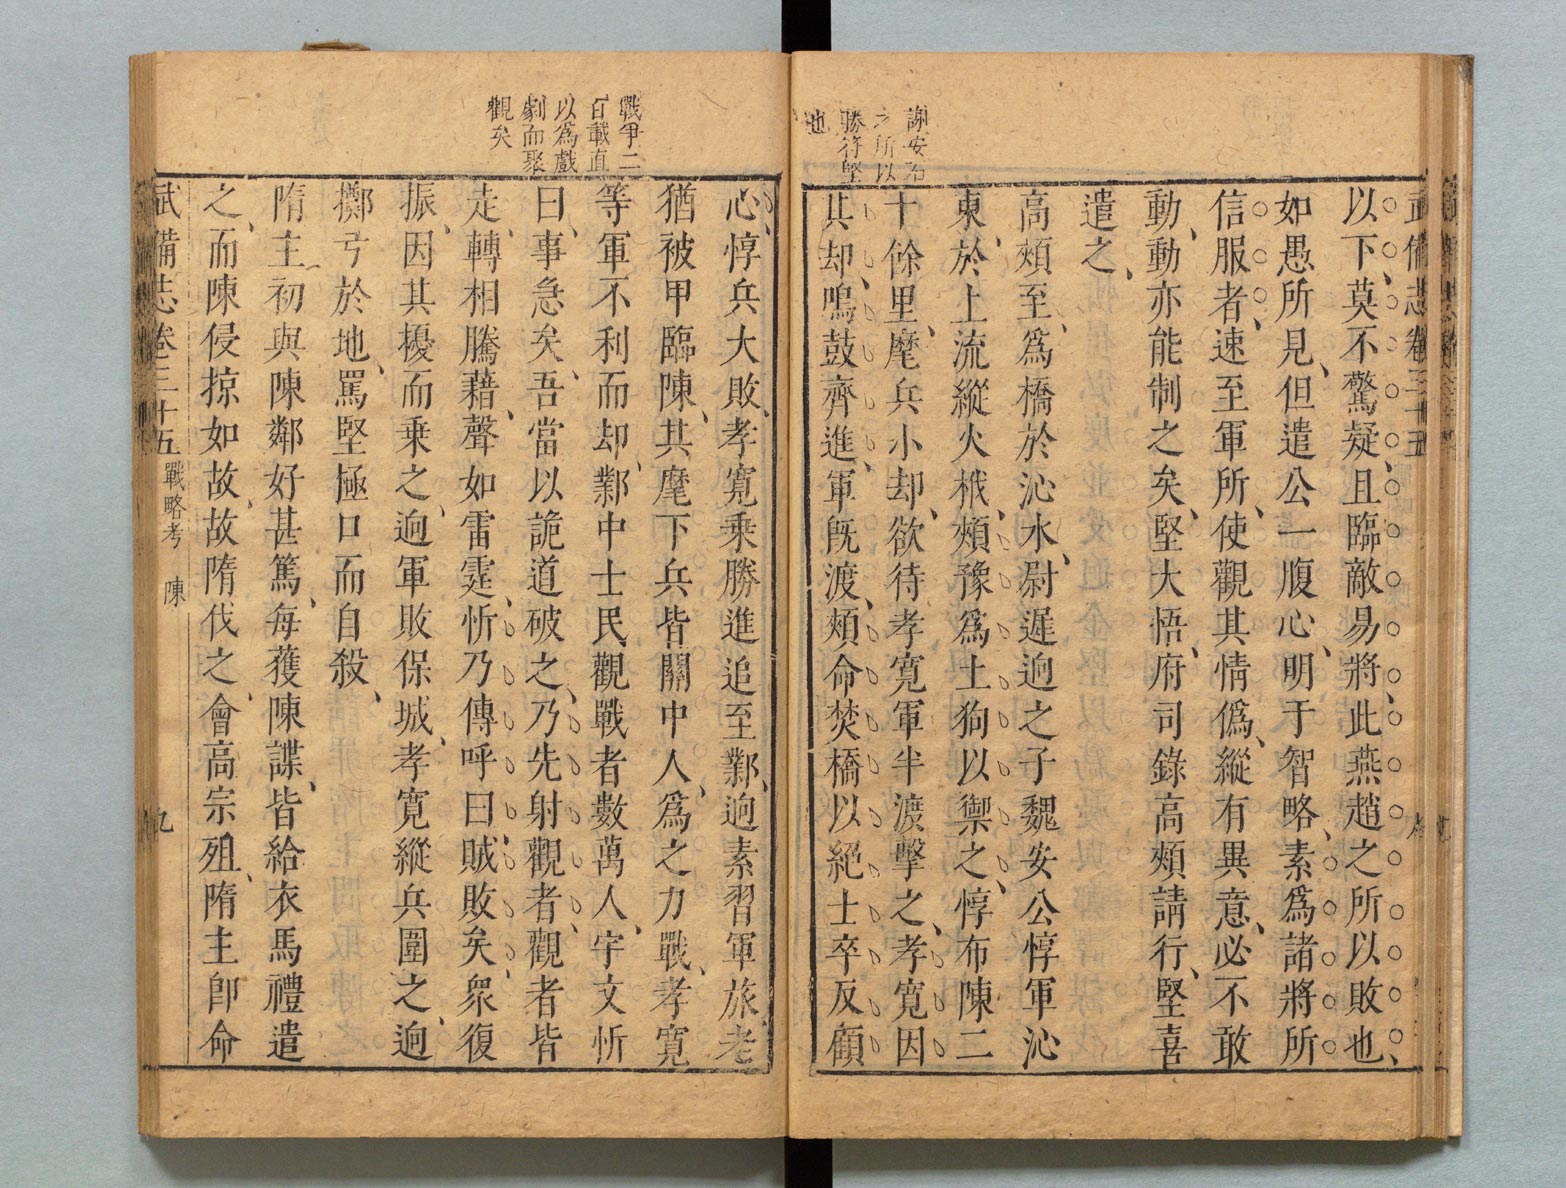 謝安石
之所以
勝苻堅
也
武備志卷三十五
以下莫不驚疑且臨敵易將此燕趙之所以敗也
如愚所見但遣公一腹心明于智略素爲諸將所
信服者速至軍所使觀其情僞縱有異意必不敢
動動亦能制之矣堅大悟府司錄高熲請行堅喜
遣之
高熲至爲橋於沁水尉遲迥之子魏安公惇軍沁
東於上流縱火栰熲豫爲土狗以禦之惇布陳二
十餘里麾兵小却欲待孝寬軍半渡擊之孝寬因
其却鳴鼓齊進軍旣渡熲命焚橋以絕士卒反顧
戰爭二
百載直
以爲戲
劇而聚
觀矣
心惇兵大敗孝寬乗勝進追至鄴迥素習軍旅老
猶被甲臨陳其麾下兵皆關中人爲之力戰孝寬
等軍不利而却鄴中士民觀戰者數萬人宇文忻
曰事急矣吾當以詭道破之乃先射觀者觀者皆
走轉相騰藉聲如雷霆忻乃傳呼曰賊敗矣衆復
振因其擾而乗之迥軍敗保城孝寬縱兵圍之迥
擲弓於地罵堅極口而自殺
隋主初與陳鄰好甚篤每獲陳諜皆給衣馬禮遣
之而陳侵掠如故故隋伐之會高宗殂隋主卽命
武備志卷三十五 戰略考 陳 九